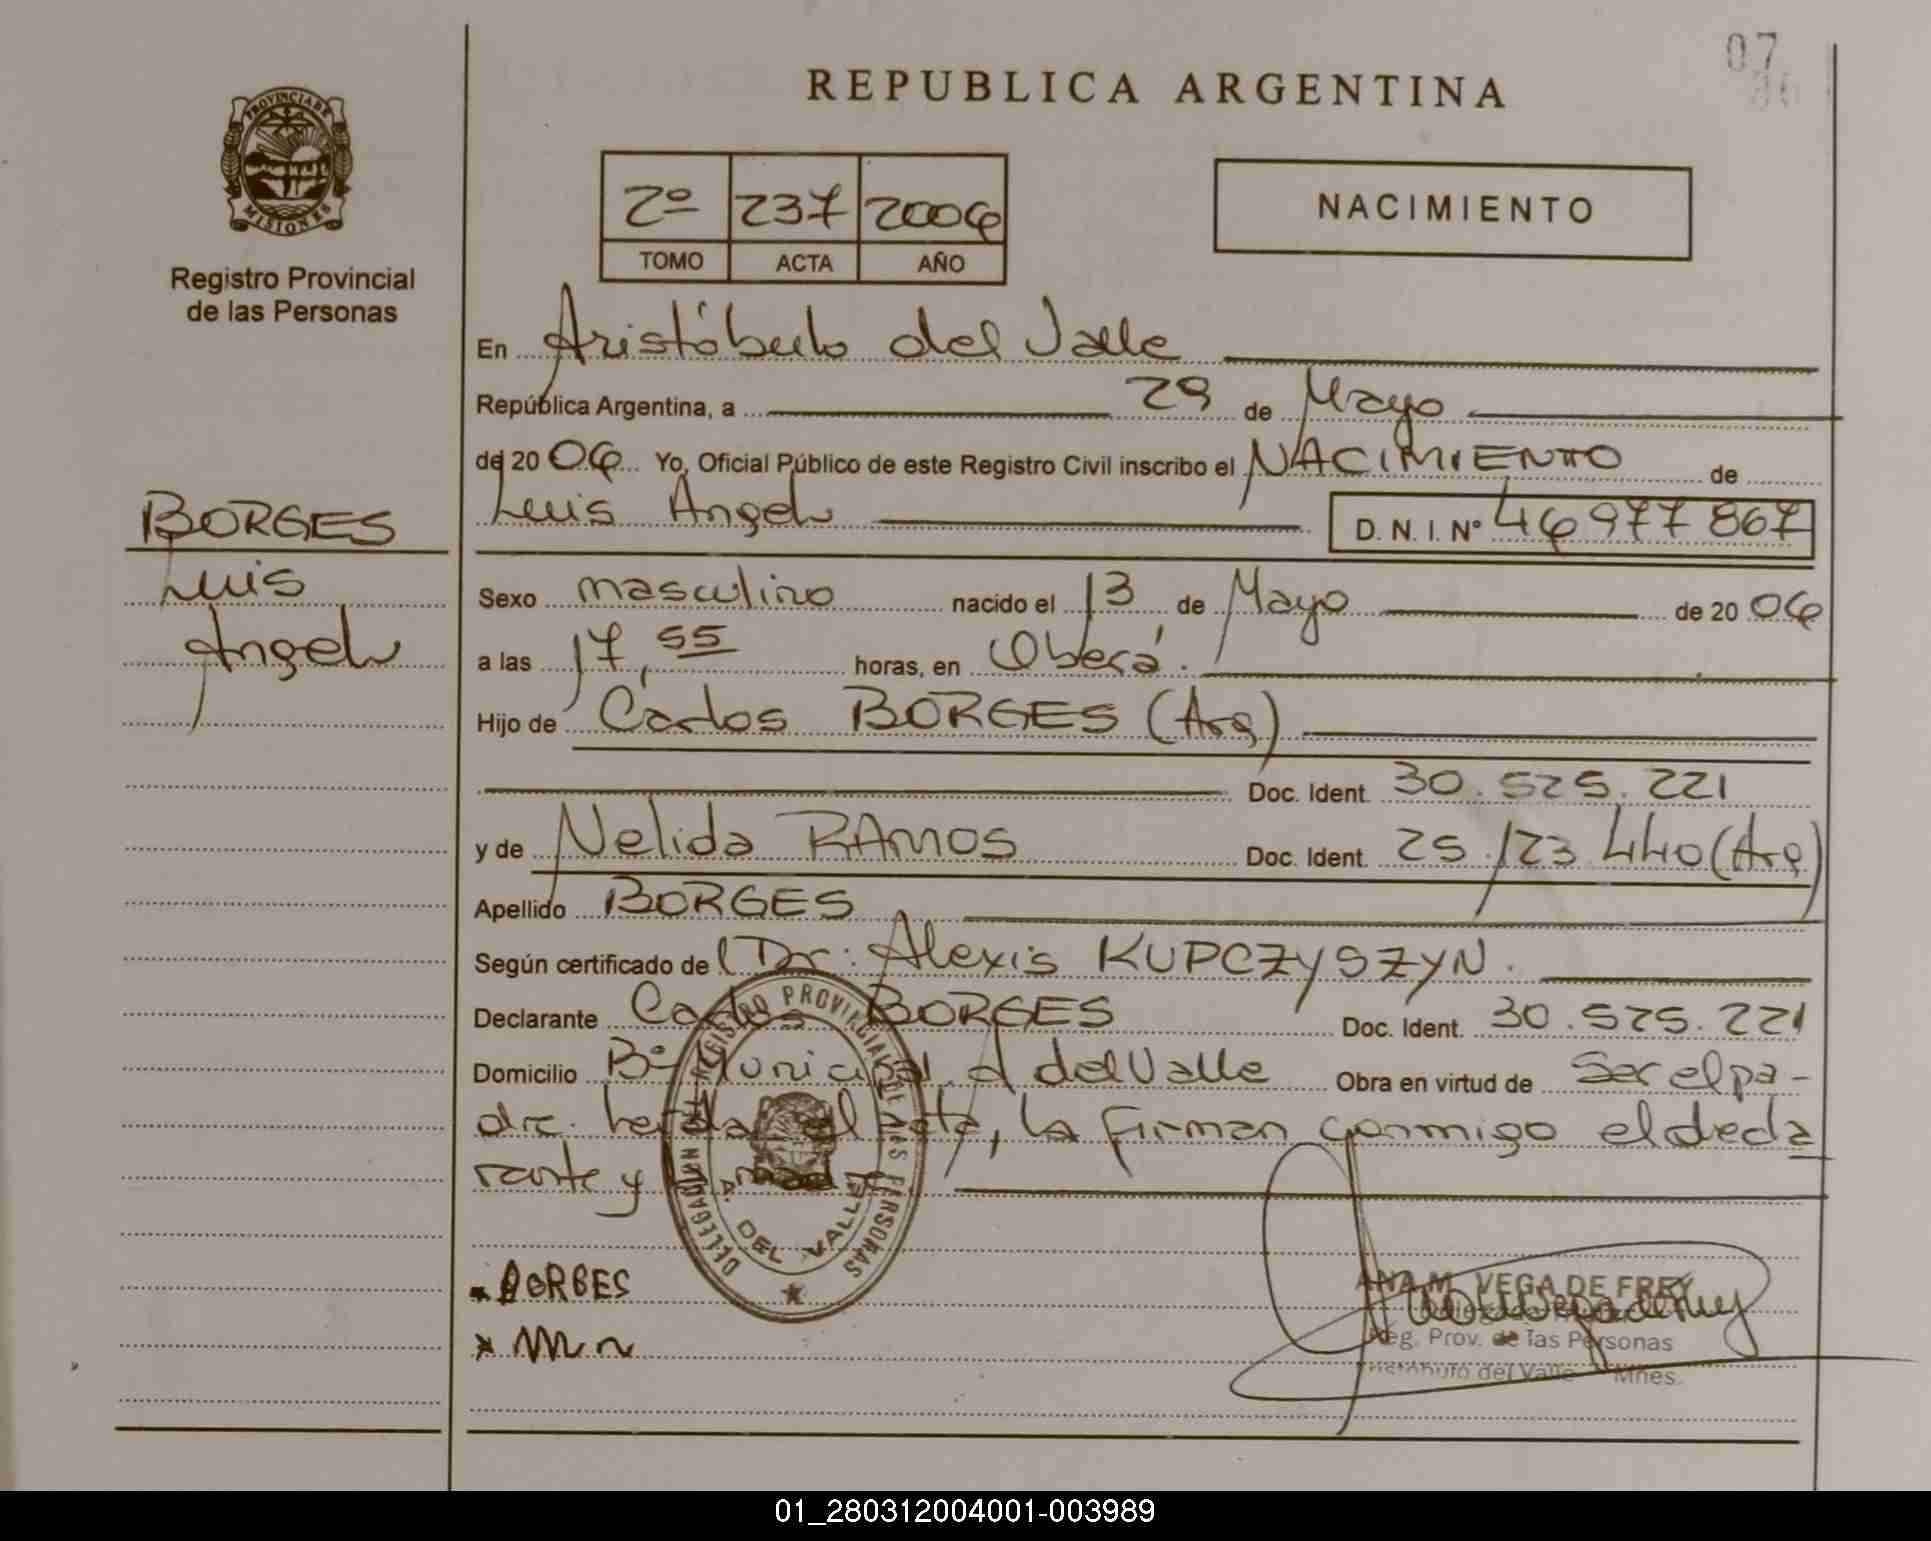 07
REPUBLICA ARGENTINA
PROVINCIA DE MISIONES
Registro Provincial
de las Personas
2º 237 2006
TOMO ACTA AÑO
NACIMIENTO
En Aristóbulo del Valle
República Argentina, a 29 de Mayo
de 20 06 Yo, Oficial Público de este Registro Civil inscribo el NACIMIENTO de
BORGES
Luis
Angel
Luis Angel D. N. I. Nº 46977867
Sexo masculino nacido el 13 de Mayo de 20 06
a las 17,55 horas, en Oberá.
Hijo de Carlos BORGES (Arg)
Doc. Ident. 30.525.221
y de Nelida RAMOS Doc. Ident. 25.123.440 (Arg)
Apellido BORGES
Según certificado del Dr: Alexis KUPCZYSZYN.
Declarante Carlos BORGES Doc. Ident. 30.525.221
Domicilio Bº Municipal, A del Valle Obra en virtud de Ser el pa-
dre. leída el acta, la firman conmigo el decla
rante y madre
REGISTRO PROVINCIAL DE LAS PERSONAS
DELEGACION
A. DEL VALLE
BORGES
ANA M. VEGA DE FREY
Reg. Prov. de las Personas
Aristóbulo del Valle Mnes.
01_280312004001-003989